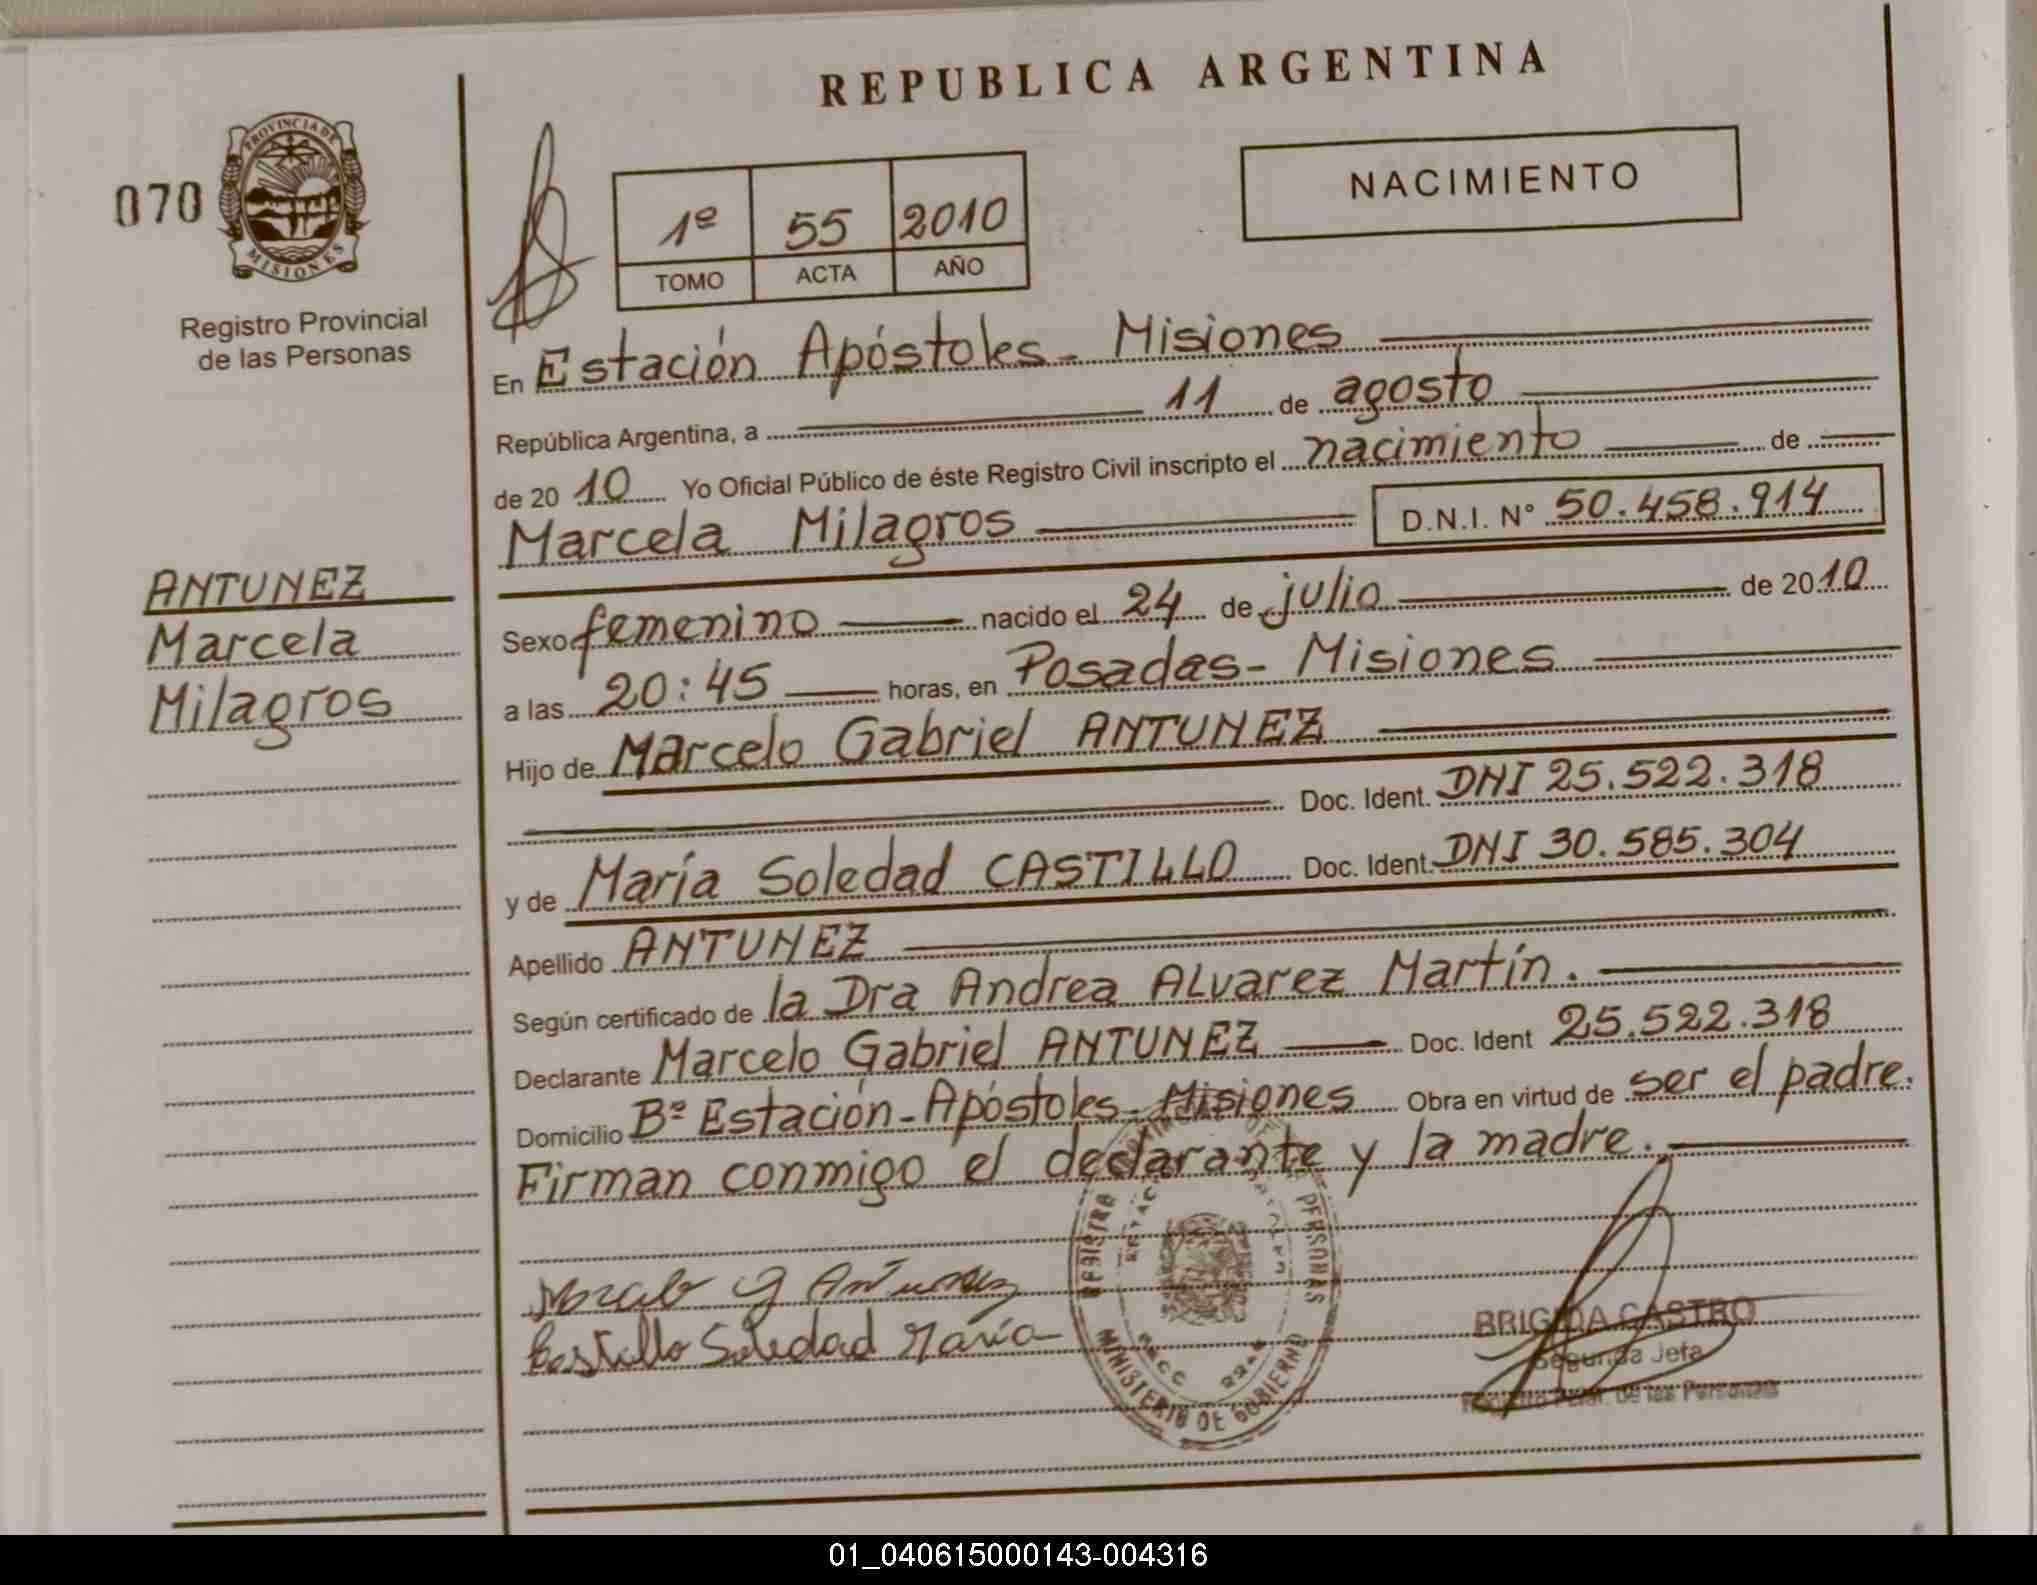 REPUBLICA ARGENTINA
070
PROVINCIA DE
MISIONES
Registro Provincial
de las Personas
1º 55 2010
TOMO ACTA AÑO
NACIMIENTO
ANTUNEZ
Marcela
Milagros
En Estación Apóstoles - Misiones
República Argentina, a 11 de agosto
de 2010 Yo Oficial Público de éste Registro Civil inscripto el nacimiento de
Marcela Milagros D.N.I. N° 50.458.914
Sexo femenino nacido el 24 de julio de 2010
a las 20:45 horas, en Posadas - Misiones
Hijo de Marcelo Gabriel ANTUNEZ
Doc. Ident. DNI 25.522.318
y de María Soledad CASTILLO Doc. Ident. DNI 30.585.304
Apellido ANTUNEZ
Según certificado de la Dra Andrea Alvarez Martín.
Declarante Marcelo Gabriel ANTUNEZ Doc. Ident 25.522.318
Domicilio Bº Estación - Apóstoles - Misiones Obra en virtud de ser el padre.
Firman conmigo el declarante y la madre.
Marcelo G Antunez
Castillo Soledad María
PERSONAS
MINISTERIO DE GOBIERNO
BRIGIDA CASTRO
Segunda Jefa
de las Personas
01_040615000143-004316